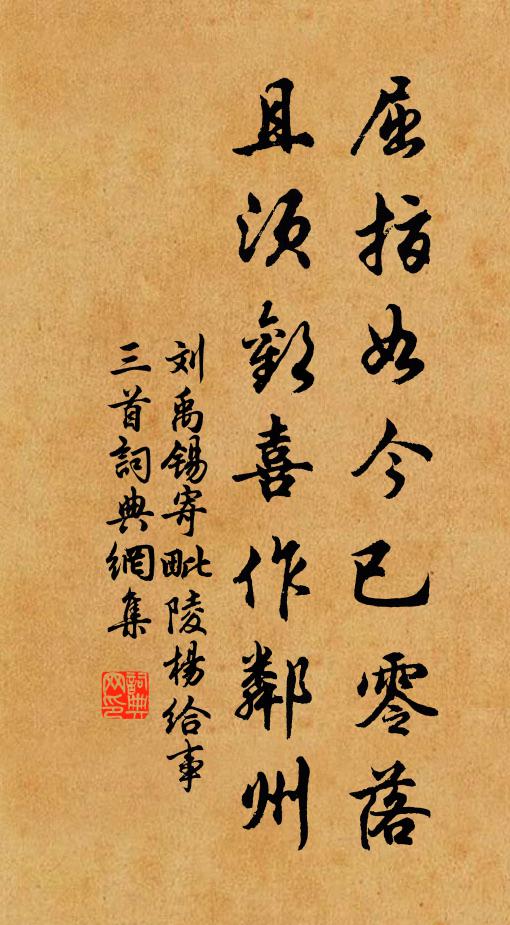 屈指如今已零落
且须歡喜作鄰州
刘禹锡寄毗陵楊给事
三首詞典網集
詞典網印